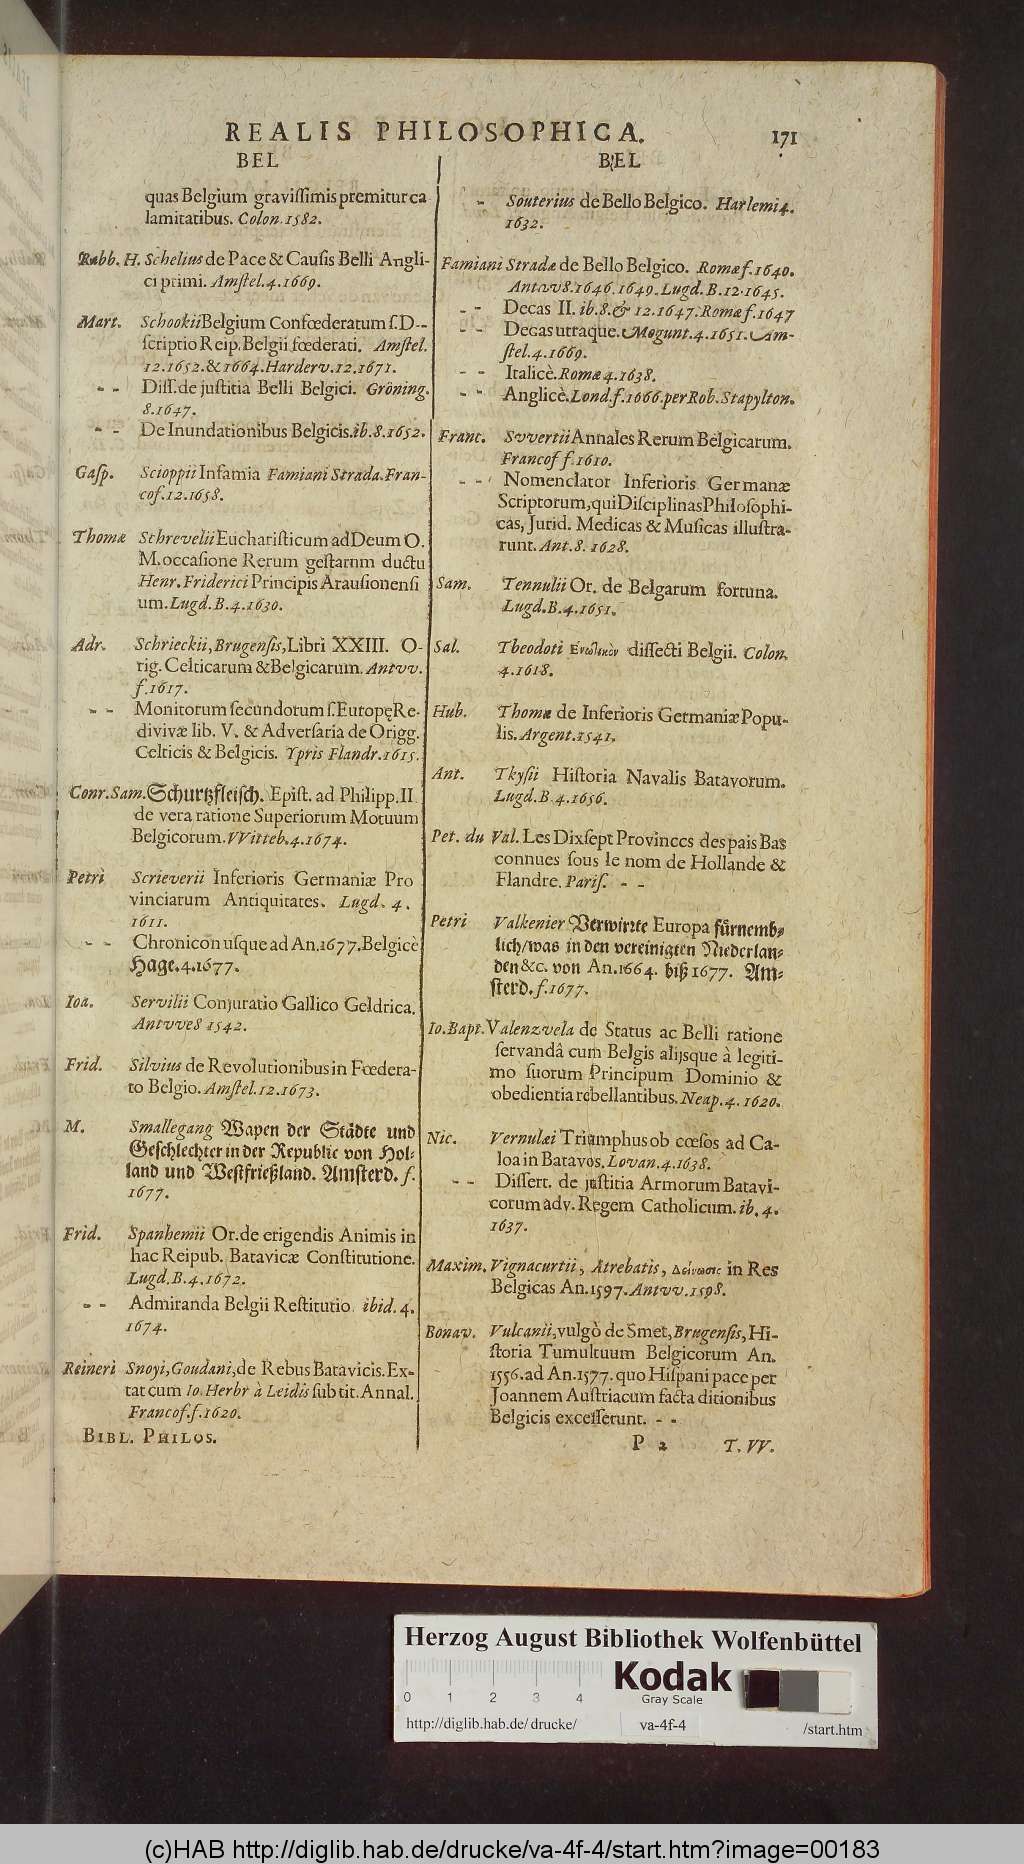 REALIS PHILOSOPHICA. 171
BEL
quas Belgium gravissimis premitur ca
lamitatibus. Colon. 1582.
Rabb. H. Schelius de Pace & Causis Belli Angli-
ci primi. Amstel. 4. 1669.
Mart. Schookii Belgium Confœderatum s. D--
scriptio Reip. Belgii fœderati. Amstel.
12. 1652. & 1664. Harderv. 12. 1671.
- - Diss. de justitia Belli Belgici. Gröning.
8. 1647.
- - De Inundationibus Belgicis. ib. 8. 1652.
Gasp. Scioppii Infamia Famiani Strada. Fran-
cof. 12. 1658.
Thomæ Schrevelii Eucharisticum ad Deum O.
M. occasione Rerum gestarum ductu
Henr. Friderici Principis Arausionensi
um. Lugd. B. 4. 1630.
Adr. Schrieckii, Brugensis, Libri XXIII. O-
rig. Celticarum & Belgicarum. Antvv.
f. 1617.
- - Monitorum secundorum s. Europę Re-
divivæ lib. V. & Adversaria de Origg.
Celticis & Belgicis. Ypris Flandr. 1615.
Conr. Sam. Schurtzfleisch. Epist. ad Philipp. II
de vera ratione Superiorum Motuum
Belgicorum. VVitteb. 4. 1674.
Petri Scrieverii Inferioris Germaniæ Pro
vinciarum Antiquitates. Lugd. 4.
1611.
- - Chronicon usque ad An. 1677. Belgicè
Hage. 4. 1677.
Ioa. Servilii Conjuratio Gallico Geldrica.
Antvve 8 1542.
Frid. Silvius de Revolutionibus in Fœdera-
to Belgio. Amstel. 12. 1673.
M. Smallegang Wapen der Städte und
Geschlechter in der Republic von Hol-
land und Westfrießland. Amsterd. f.
1677.
Frid. Spanhemii Or. de erigendis Animis in
hac Reipub. Batavicæ Constitutione.
Lugd. B. 4. 1672.
- - Admiranda Belgii Restitutio. ibid. 4.
1674.
Reineri Snoyi, Goudani, de Rebus Batavicis. Ex-
tat cum Io. Herbr à Leidis sub tit. Annal.
Francof. f. 1620.
BIBL. PHILOS.
BEL
- Souterius de Bello Belgico. Harlemi 4.
1632.
Famiani Stradæ de Bello Belgico. Romæ f. 1640.
Antvv 8. 1646. 1649. Lugd. B. 12. 1645.
- - Decas II. ib. 8. & 12. 1647. Romæ f. 1647
- - Decas utraque. Mogunt. 4. 1651. Am-
stel. 4. 1669.
- - Italicè. Romæ 4. 1638.
- - Anglicè. Lond. f. 1666. per Rob. Stapylton.
Franc. Svvertii Annales Rerum Belgicarum.
Francof f. 1610.
- - Nomenclator Inferioris Germanæ
Scriptorum, qui Disciplinas Philosophi-
cas, Jurid. Medicas & Musicas illustra-
runt. Ant. 8. 1628.
Sam. Tennulii Or. de Belgarum fortuna.
Lugd. B. 4. 1651.
Sal. Theodoti Ενωτικὸν dissecti Belgii. Colon.
4. 1618.
Hub. Thomæ de Inferioris Germaniæ Popu-
lis. Argent. 1541.
Ant. Tkysii Historia Navalis Batavorum.
Lugd. B. 4. 1656.
Pet. du Val. Les Dixsept Provinces des pais Bas
connues sous le nom de Hollande &
Flandre. Paris. - -
Petri Valkenier Verwirrte Europa fürnemb-
lich / was in den vereinigten Niederlan-
den &c. von An. 1664. biß 1677. Am-
sterd. f. 1677.
Io. Bapt. Valenzvela de Status ac Belli ratione
servandâ cum Belgis alijsque à legiti-
mo suorum Principum Dominio &
obedientia rebellantibus. Neap. 4. 1620.
Nic. Vernulæi Triumphus ob cœsos ad Ca-
loa in Batavos. Lovan. 4. 1638.
- - Dissert. de justitia Armorum Batavi-
corum adv. Regem Catholicum. ib. 4.
1637.
Maxim. Vignacurtii, Atrebatis, Δείνωσις in Res
Belgicas An. 1597. Antvv. 1598.
Bonav. Vulcanii, vulgò de Smet, Brugensis, Hi-
storia Tumultuum Belgicorum An.
1556. ad An. 1577. quo Hispani pace per
Joannem Austriacum facta ditionibus
Belgicis excesserunt. - -
P 2 T. VV.
Herzog August Bibliothek Wolfenbüttel
0 1 2 3 4
Kodak
Gray Scale
http://diglib.hab.de/drucke/ va-4f-4 /start.htm
(c)HAB http://diglib.hab.de/drucke/va-4f-4/start.htm?image=00183